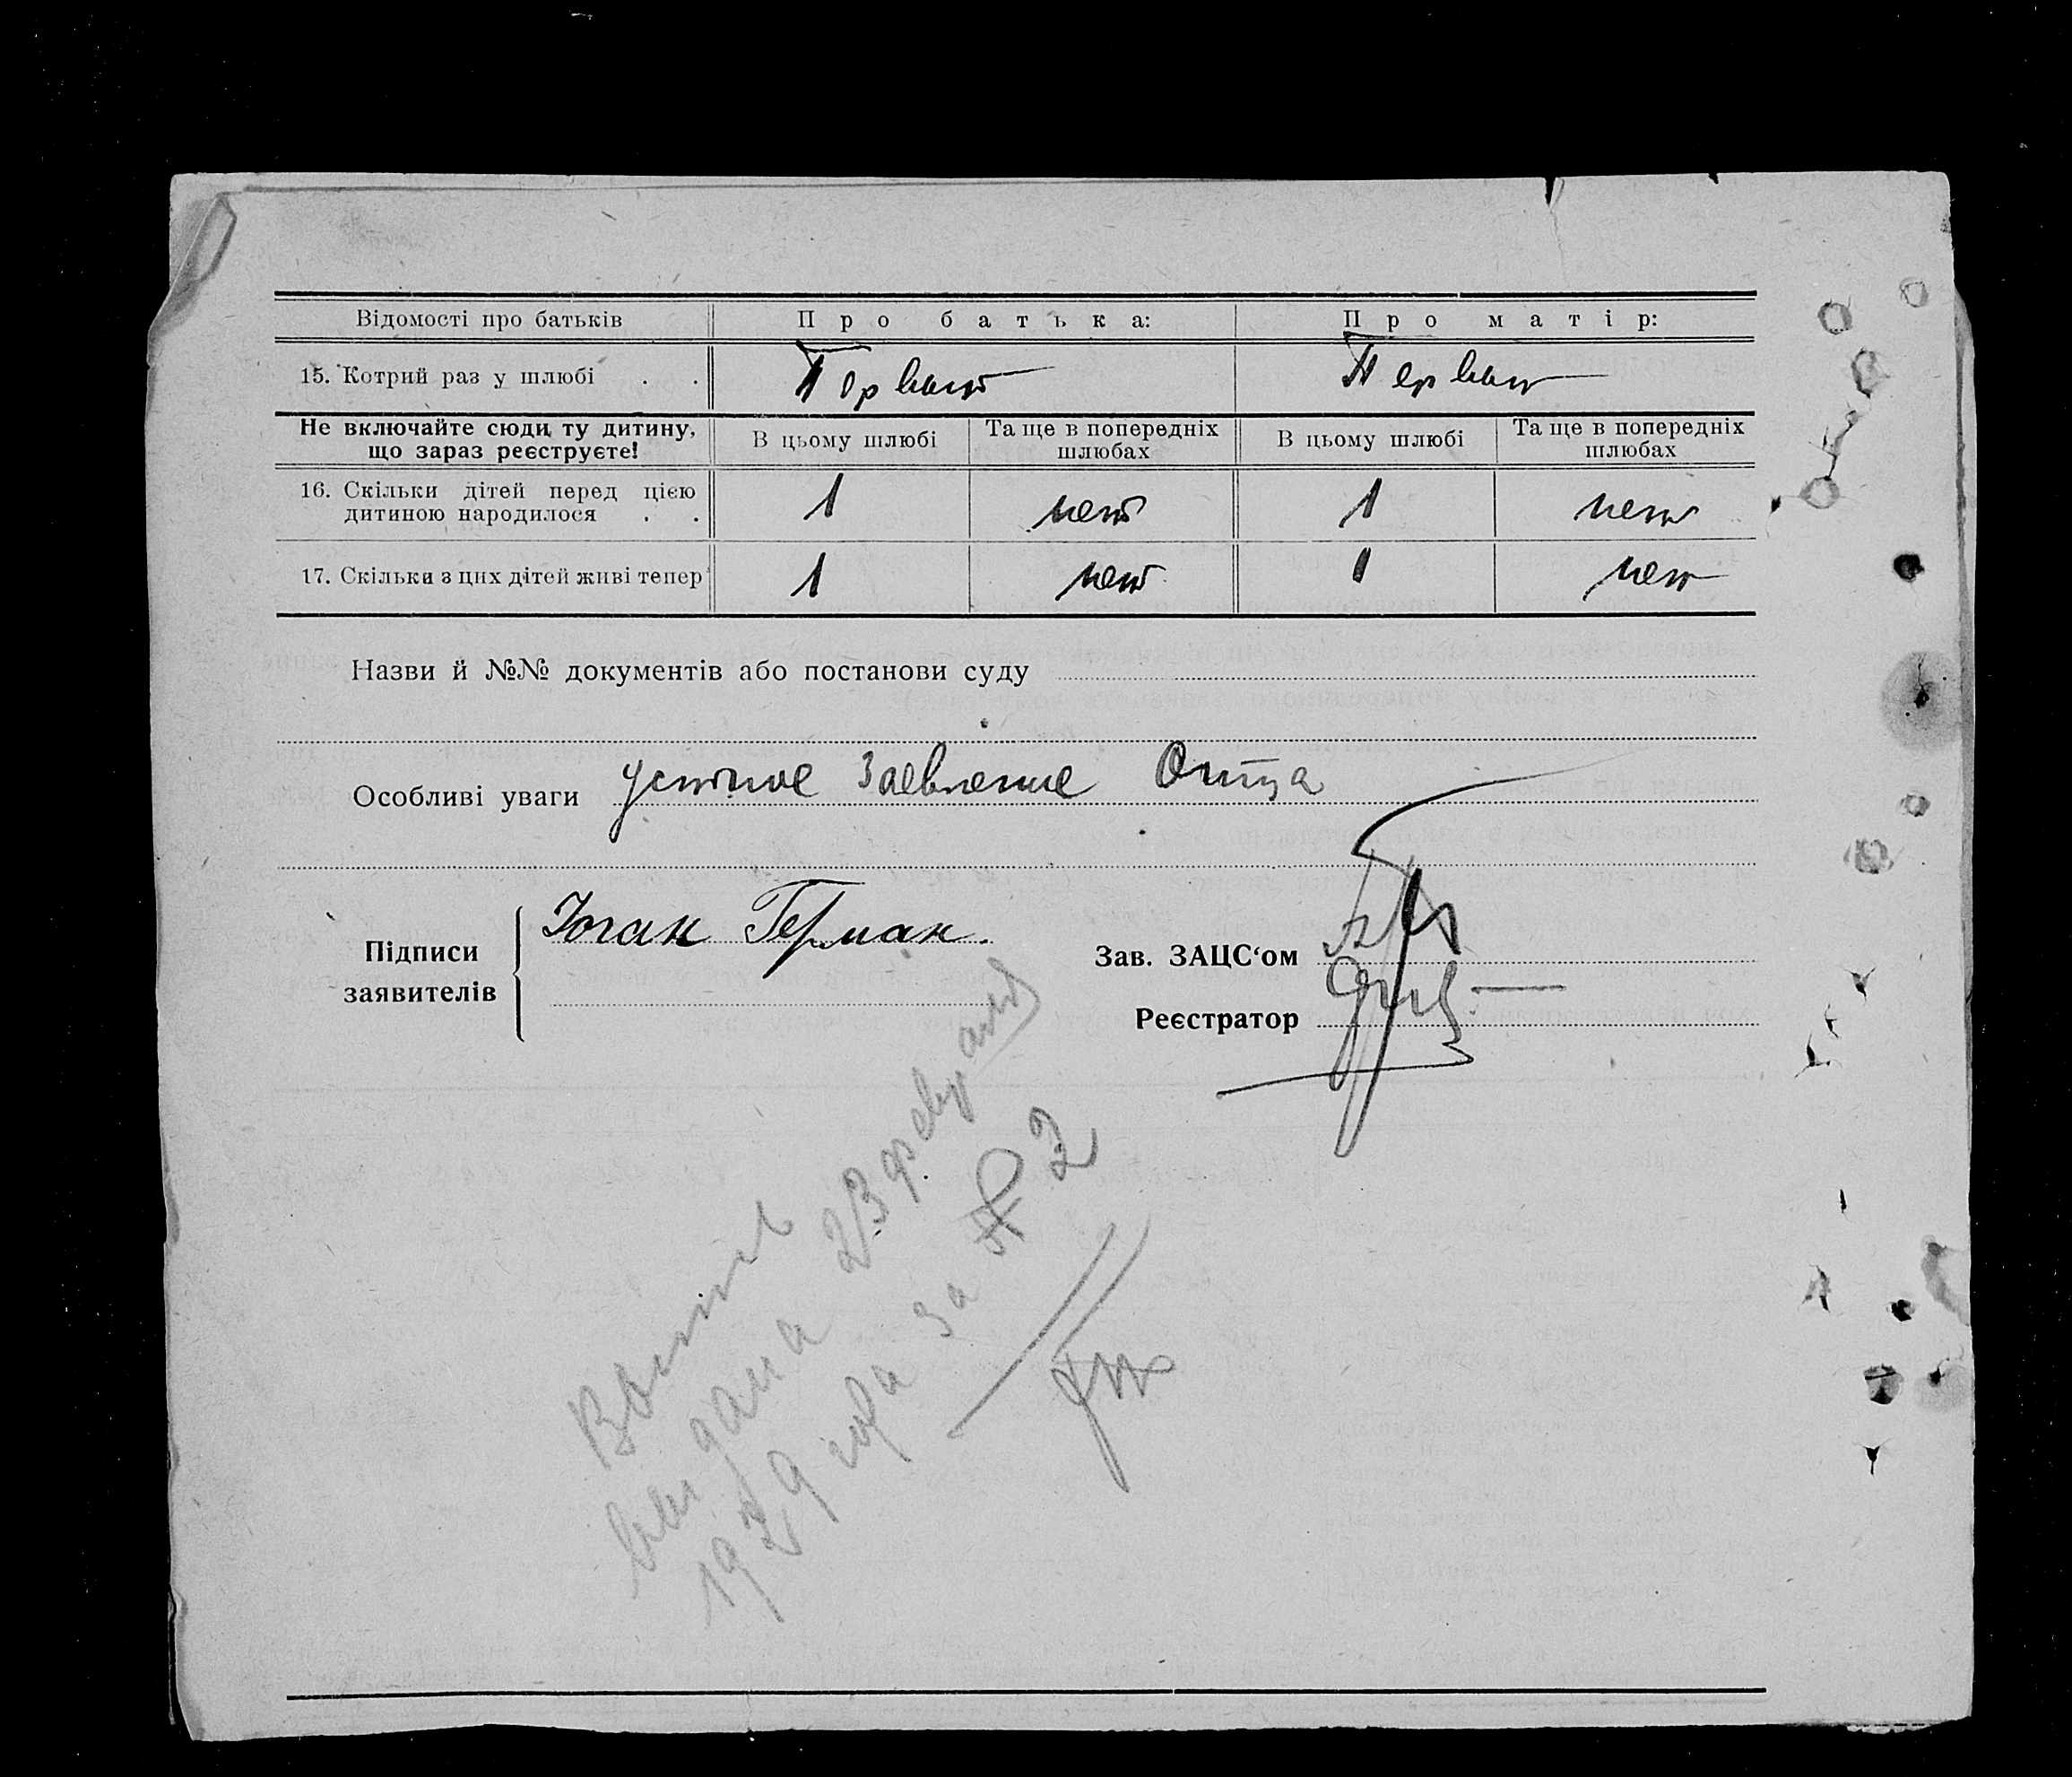 Відомості про батьків Про батька: Про матір:
15. Котрий раз у шлюбі . . Первий Первий
Не включайте сюди ту дитину, що зараз реєструєте! В цьому шлюбі Та ще в попередніх шлюбах В цьому шлюбі Та ще в попередніх шлюбах
16. Скільки дітей перед цією дитиною народилося . . 1 нет 1 нет
17. Скільки з цих дітей живі тепер 1 нет 1 нет
Назви й №№ документів або постанови суду
Особливі уваги устное Заевление Отца
Підписи заявителів
Иоган Герман.
Зав. ЗАЦС‘ом
Реєстратор
Выпись
выдана 23 февраля
1929 года за № 2